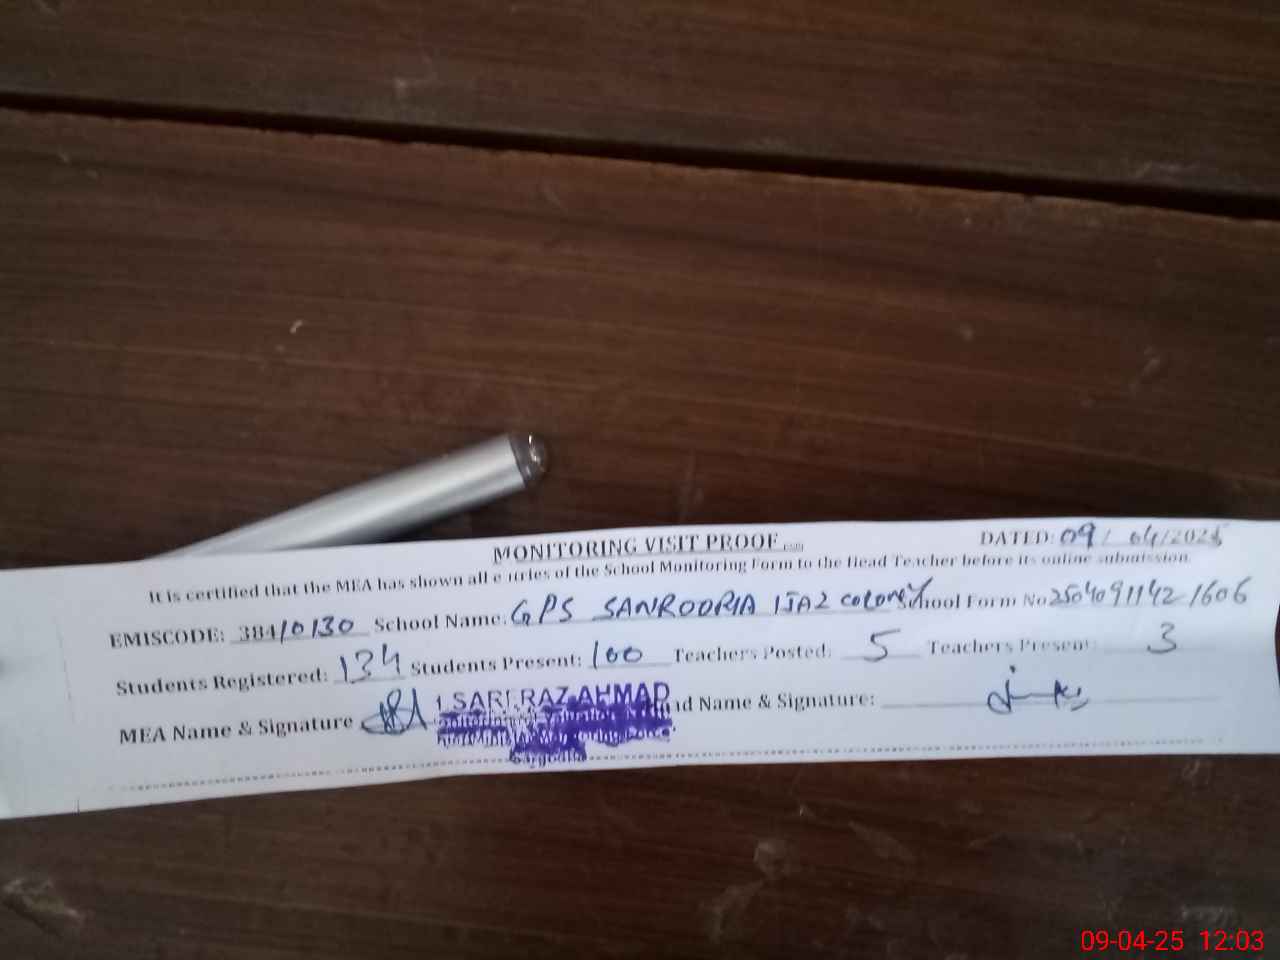 MONITORING VISIT PROOF
DATED: 09/04/2025
It is certified that the MEA has shown all entries of the School Monitoring Form to the Head Teacher before its online submission.
EMISCODE: 38410130 School Name: GPS SANROORIA IJAZ colony School Form No 25040911421606
Students Registered: 134 Students Present: 100 Teachers Posted: 5 Teachers Present: 3
MEA Name & Signature SARFRAZ AHMAD Name & Signature:
Sargodha
09-04-25 12:03